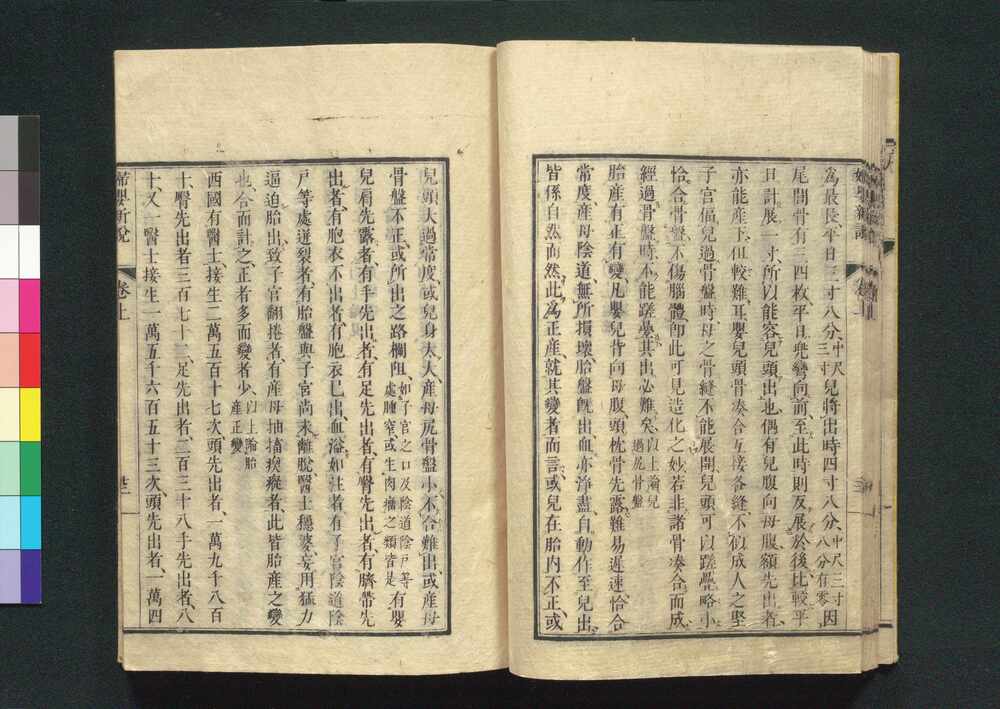 為最長平日三寸八分中尺三寸兒將出時四寸八分中尺三寸八分有零因
尾閭骨有三四枚平日兜彎向前至此時則反展於後比較平
日計展一寸所以能容兒頭出也偶有兒腹向母腹額先出者
亦能產下但較難耳嬰兒頭骨湊合互接各縫不似成人之堅
子宮偪兒過骨盤時母之骨縫不能展開兒頭可以蹉疊略小
恰合骨盤不傷腦體卽此可見造化之妙若非諸骨湊合而成
經過骨盤時不能蹉疊其出必難矣以上論兒過尻骨盤
胎產有正有變凡嬰兒背向母腹頭枕骨先露難易遲速恰合
常度產母陰道無所損壞胎盤既出血亦淨盡自動作至兒出
皆係自然而然此為正產就其變者而言或兒在胎內不正或
兒頭大過常度或兒身太大產母尻骨盤小不合難出或產母
骨盤不正或所出之路欄阻如子宮之口及陰道陰戶等處瞳窄或生肉瘤之類皆是有嬰
兒肩先露者有手先出者有足先出者有臀先出者有臍帶先
出者有胞衣不出者有胞衣已出血溢如注者有子宮陰道陰
戶等處迸裂者有胎盤與子宮尚未離脫醫士穩婆妄用猛力
逼迫胎出致子宮翻捲者有產母抽搐瘈瘲者此皆胎產之變
也合而計之正者多而變者少以上論胎產正變
西國有醫士接生二萬五百十七次頭先出者一萬九千八百
十臀先出者三百七十二足先出者二百三十八手先出者八
十又一醫士接生一萬五千六百五十三次頭先出者一萬四
婦嬰新說 卷上 廿一